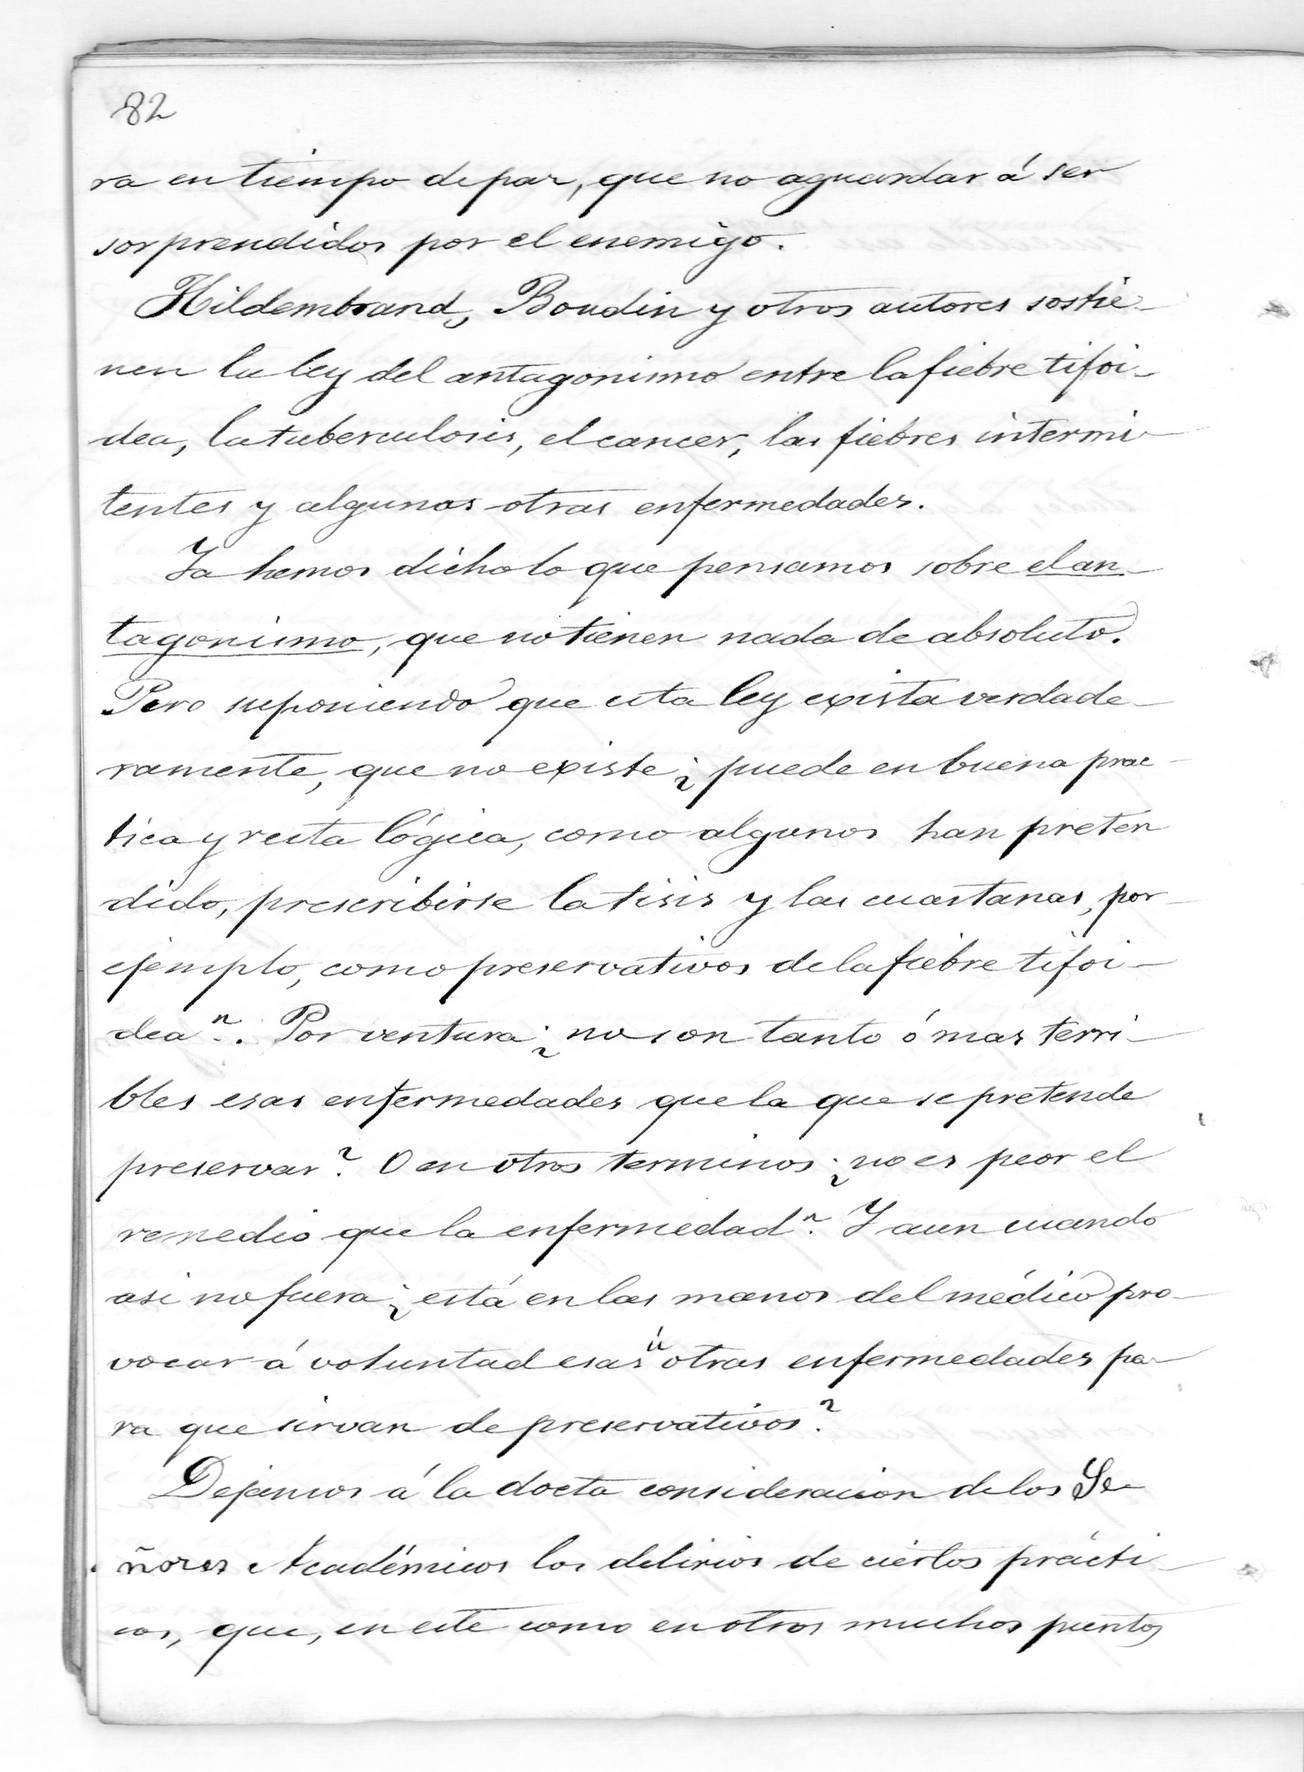 82
ra en tiempo de paz, que no aguardar á ser
sorprendidos por el enemigo.
Hildembrand, Boudin y otros autores sostie-
nen la ley del antagonismo entre la fiebre tifoi-
dea, la tuberculosis, el cancer, las fiebres intermi-
tentes y algunas otras enfermedades.
Ya hemos dicho lo que pensamos sobre el an-
tagonismo, que no tienen nada de absoluto.
Pero suponiendo que esta ley exista verdade-
ramente, que no existe ¿ puede en buena prac-
tica y recta lógica, como algunos han preten
dido, prescribirse la tisis y las cuartanas, por
ejemplo, como preservativos de la fiebre tifoi-
dea?. Por ventura ¿ no son tanto ó mas terri-
bles esas enfermedades que la que se pretende
preservar? O en otros terminos ¿ no es peor el
remedio que la enfermedad? Y aun cuando
asi no fuera ¿ está en las manos del médico pro-
vocar á voluntad esas ú otras enfermedades pa-
ra que sirvan de preservativos?
Dejamos á la docta consideracion de los Se-
ñores Académicos los delirios de ciertos prácti-
cos, que, en este como en otros muchos puntos